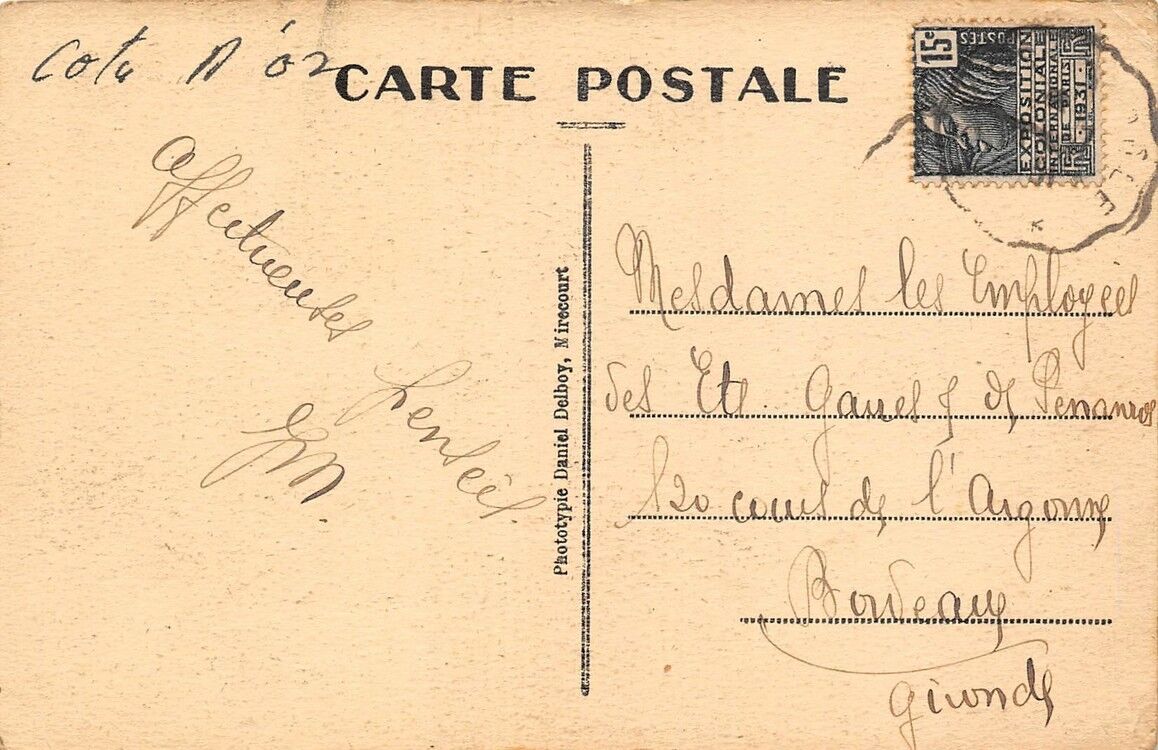 Cote D'or
CARTE POSTALE
15c
POSTES
EXPOSITION
COLONIALE
INTERNATIONALE
DE PARIS
1931
Affectueuses
Pensées
GM
Phototypie Daniel Delboy, Mirecourt
Mesdames les Employées
des Ets
120 cours de l'Argonne
Bordeaux
Gironde